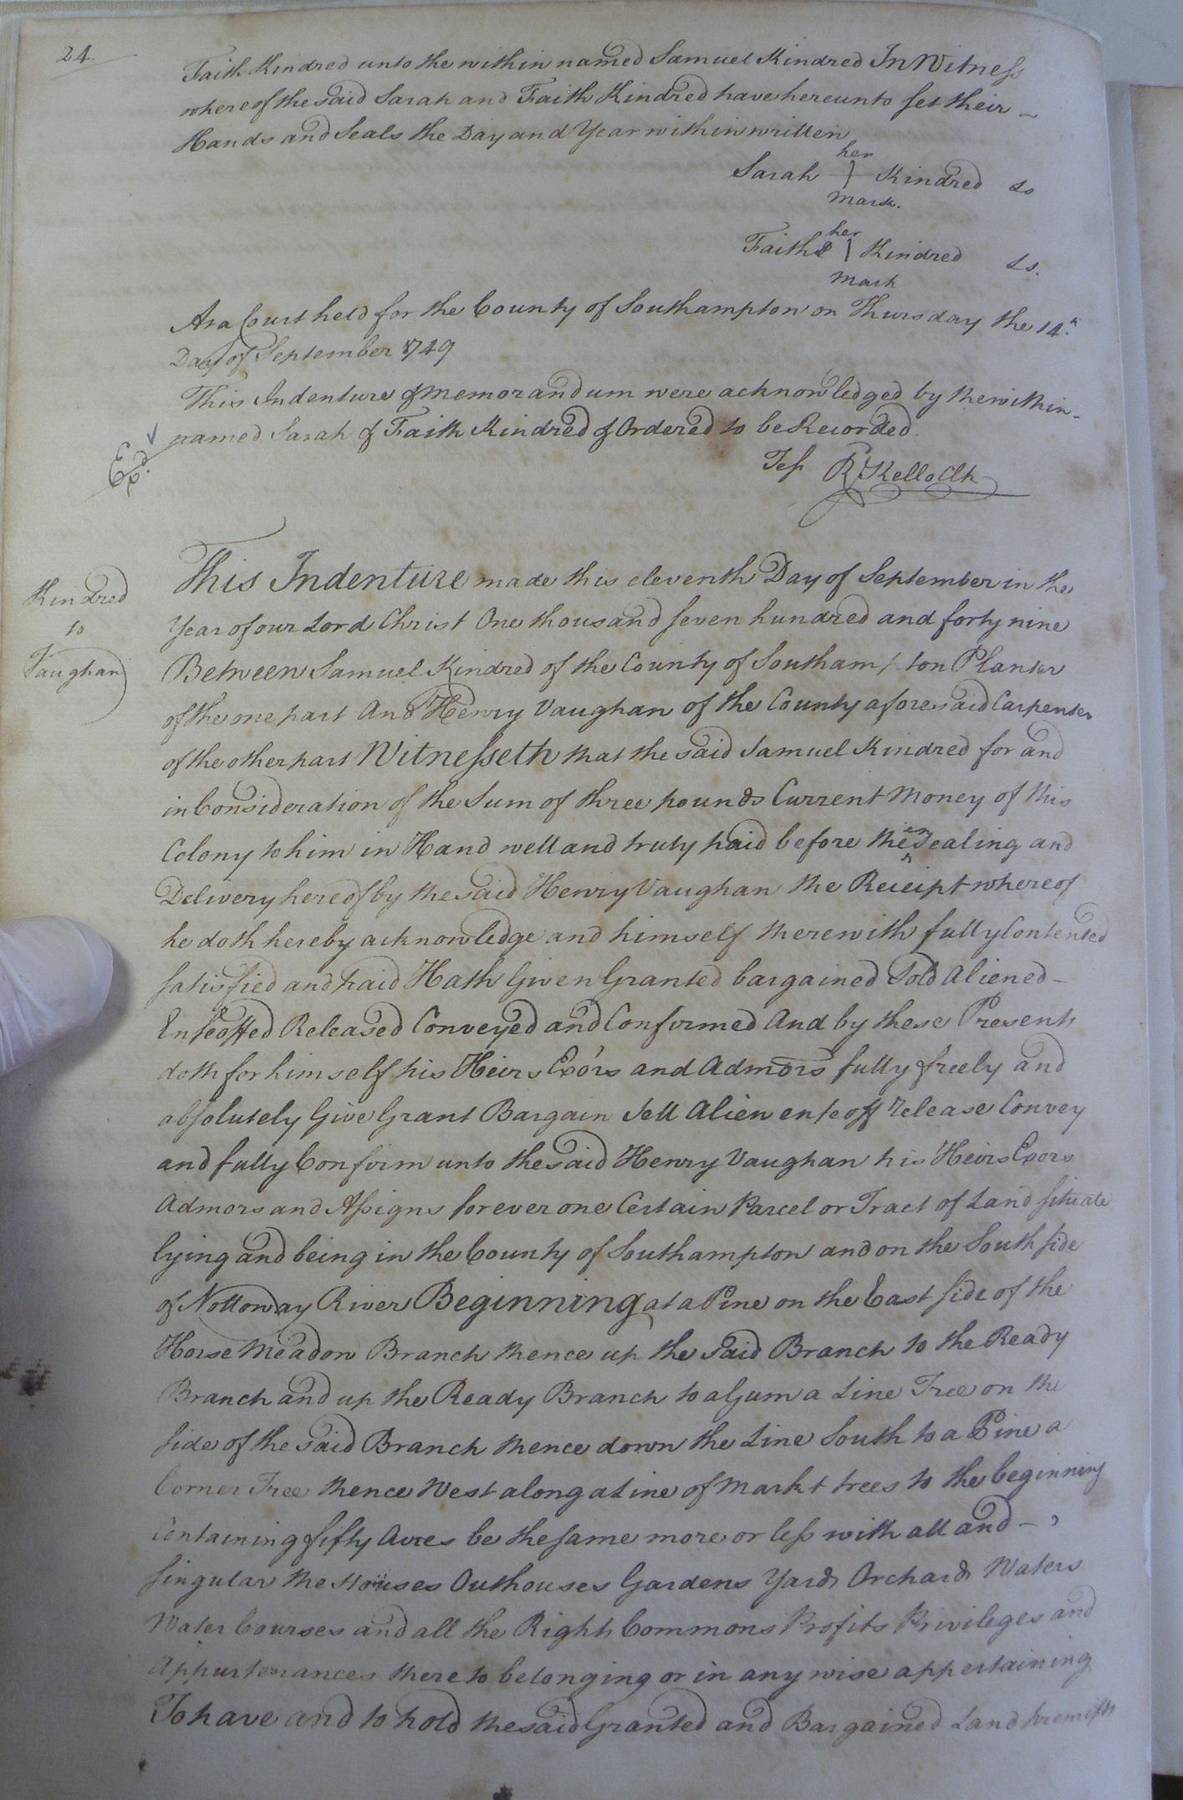 24.
Faith Kindred unto the within named Samuel Kindred In Witness
whereof the said Sarah and Faith Kindred have hereunto set their
Hands and Seals the Day and Year within written
her
Sarah Kindred Ls
Mark.
her
Faith Kindred Ls.
Mark
At a Court held for the County of Southampton on Thursday the 14th
Day of September 1749
This Indenture & Memorandum were acknowledged by the within
named Sarah & Faith Kindred & Ordered to be Recorded.
Exd.
Tes R Kello Clk
Kindred
to
Vaughan
This Indenture made this eleventh Day of September in the
Year of our Lord Christ One thousand seven hundred and forty nine
Between Samuel Kindred of the County of Southampton Planter
of the one part And Henry Vaughan of the County aforesaid Carpenter
of the other part Witnesseth that the said Samuel Kindred for and
in Consideration of the Sum of three pounds Current Money of this
Colony to him in Hand well and truly paid before the ensealing and
Delivery hereof by the said Henry Vaughan the Receipt whereof
he doth hereby acknowledge and himself therewith fully Contented
satisfied and paid Hath Given Granted bargained Sold Aliened
Enfeoffed Released Conveyed and Confirmed And by these Presents
doth for himself his Heirs Exors and Admors fully freely and
absolutely Give Grant Bargain Sell Alien enfeoff release Convey
and fully Confirm unto the said Henry Vaughan his Heirs Exors
Admors and Assigns for ever one Certain Parcel or Tract of Land situate
lying and being in the County of Southampton and on the South side
of Nottoway River Beginning at a Pine on the East side of the
Horse Meadow Branch thence up the said Branch to the Ready
Branch and up the Ready Branch to a Gum a Line Tree on the
side of the said Branch thence down the Line South to a Pine a
Corner Tree thence West along a Line of Markt trees to the beginning
Containing fifty Acres be the same more or less with all and
singular the Houses Outhouses Gardens Yards Orchards Waters
Water Courses and all the Rights Commons Profits Privileges and
Appurtenances there to belonging or in any wise appertaining
To have and to hold the said Granted and Bargained Land premises